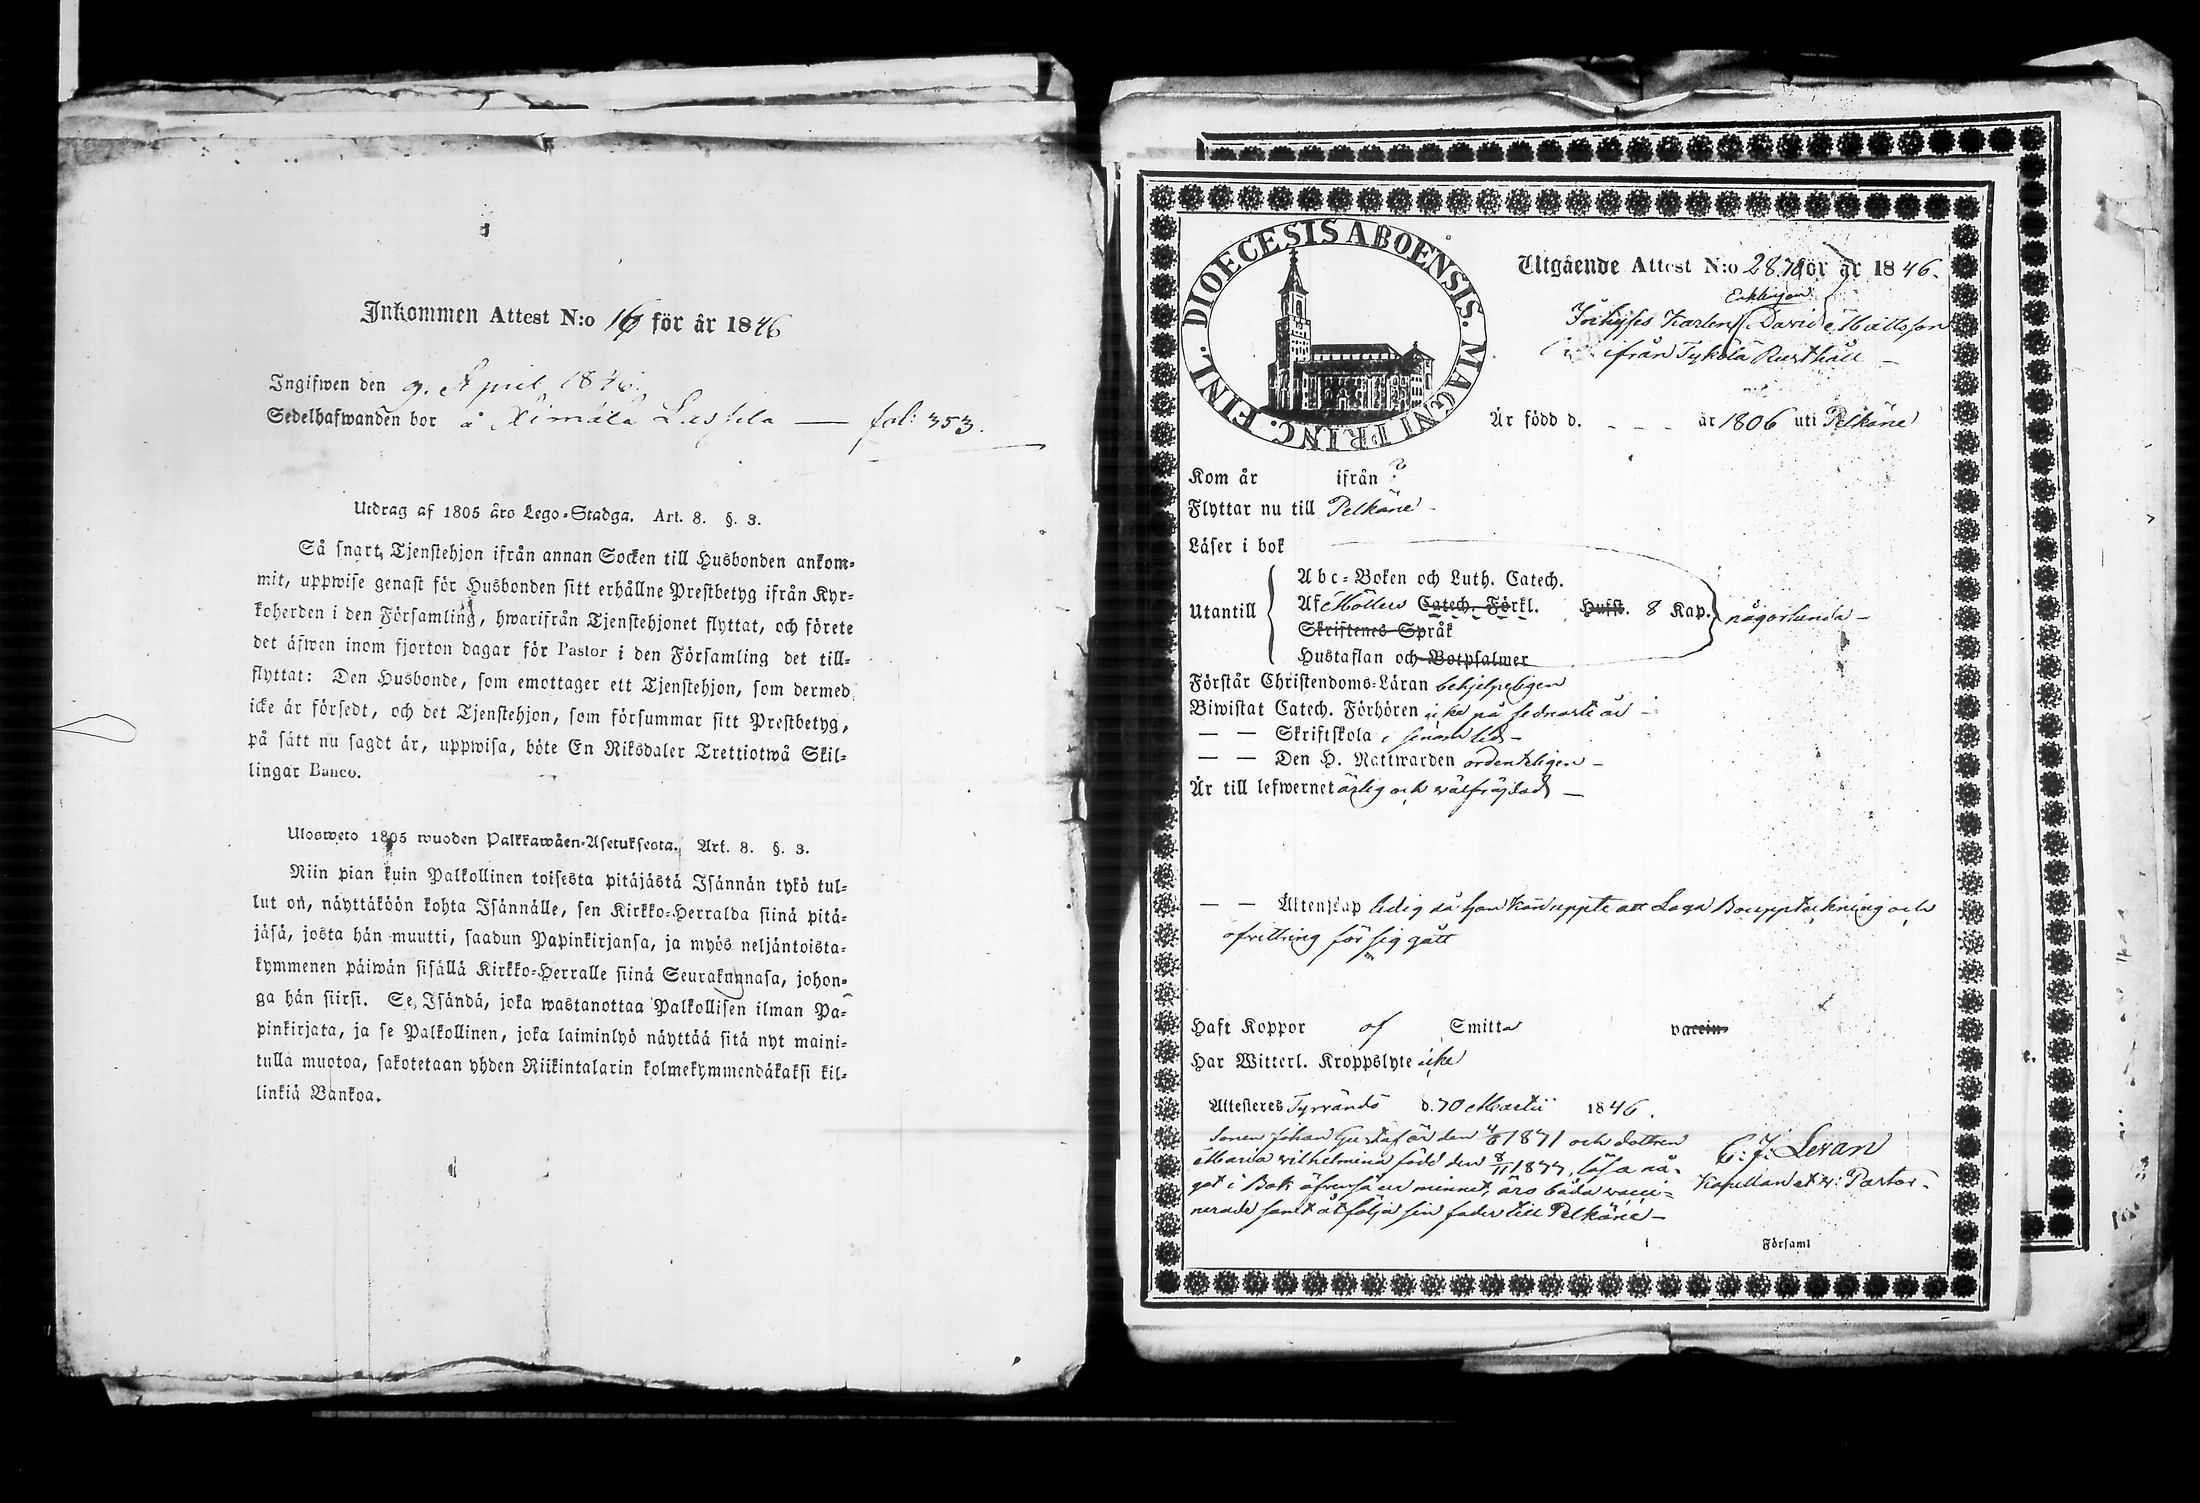 Inkommen Attest N:o 16 för år 1846
Ingifwen den 9. April 1846.
Sedelhafwanden bor å Äimälä Lassila — fol: 353.
Utdrag af 1805 års Lego-Stadga. Art. 8. §. 3.
Så snart Tjenstehjon ifrån annan Socken till Husbonden ankom-
mit, uppwise genast för Husbonden sitt erhållne Prestbetyg ifrån Kyr-
koherden i den Församling, hwarifrån Tjenstehjonet flyttat, och förete
det äfwen inom fjorton dagar för Pastor i den Församling det till-
flyttat: Den Husbonde, som emottager ett Tjenstehjon, som dermed
icke är försedt, och det Tjenstehjon, som försummar sitt Prestbetyg,
på sätt nu sagdt är, uppwisa, böte En Riksdaler Trettiotwå Skil-
lingar Banco.
Ulosweto 1805 wuoden Palkkawäen-Asetuksesta. Art. 8. §. 3.
Niin pian kuin Palkollinen toisesta pitäjästä Isännän tykö tul-
lut on, näyttäköön kohta Isännälle, sen Kirkko-Herralda siinä pitä-
jäsä, josta hän muutti, saadun Papinkirjansa, ja myös neljäntoista-
kymmenen päiwän sisällä Kirkko-Herralle siinä Seurakunnasa, johon-
ga hän siirsi. Se Isändä, joka wastanottaa Palkollisen ilman Pa-
pinkirjata, ja se Palkollinen, joka laiminlyö näyttää sitä nyt maini-
tulla muotoa, sakotetaan yhden Riikintalarin kolmekymmendäkaksi kil-
linkiä Bankoa.
DIOECESIS ABOENSIS. MAGNI PRINC. FINL.
Utgående Attest N:o 28. för år 1846.
Enklingen
Inhyses Karlen David Mattsson
ifrån Tykölä Rusthåll —
Är född d. - - - år 1806 uti Pelkäne
Kom år ifrån ?
Flyttar nu till Pelkäne -
Läser i bok
Utantill
Abc-Boken och Luth. Catech.
Af Möllers Catech. Förkl. Hufst. 8 Kap. någorlunda —
Skriftenes Språk
Hustaflan och Botpsalmer
Förstår Christendoms-Läran behjelpeligen
Biwistat Catech. Förhören icke på sednaste år -
— — Skriftskola i senare tid -
— — Den H. Nattwarden ordenteligen —
Är till lefwernet ärlig och välfräjdad —
— — Äktenskap ledig då han kan uppte att Laga Bouppteckning och
afvittring för sig gått
Haft Koppor af Smitta vaccin.
Har Witterl. Kroppslyte icke
Attesteres Tyrvändö d. 30 Martii 1846.
Sonen Johan Gustaf är den 4/8 1831 och dottren
Maria Wilhelmina född den 8/11 1833, läsa nå-
got i Bok äfvenså ur minnet, äro båda vacci-
nerade samt åtfölja sin fader till Pelkäne —
C: J: Levan
Kapellan et v: Pastor -
i Församl